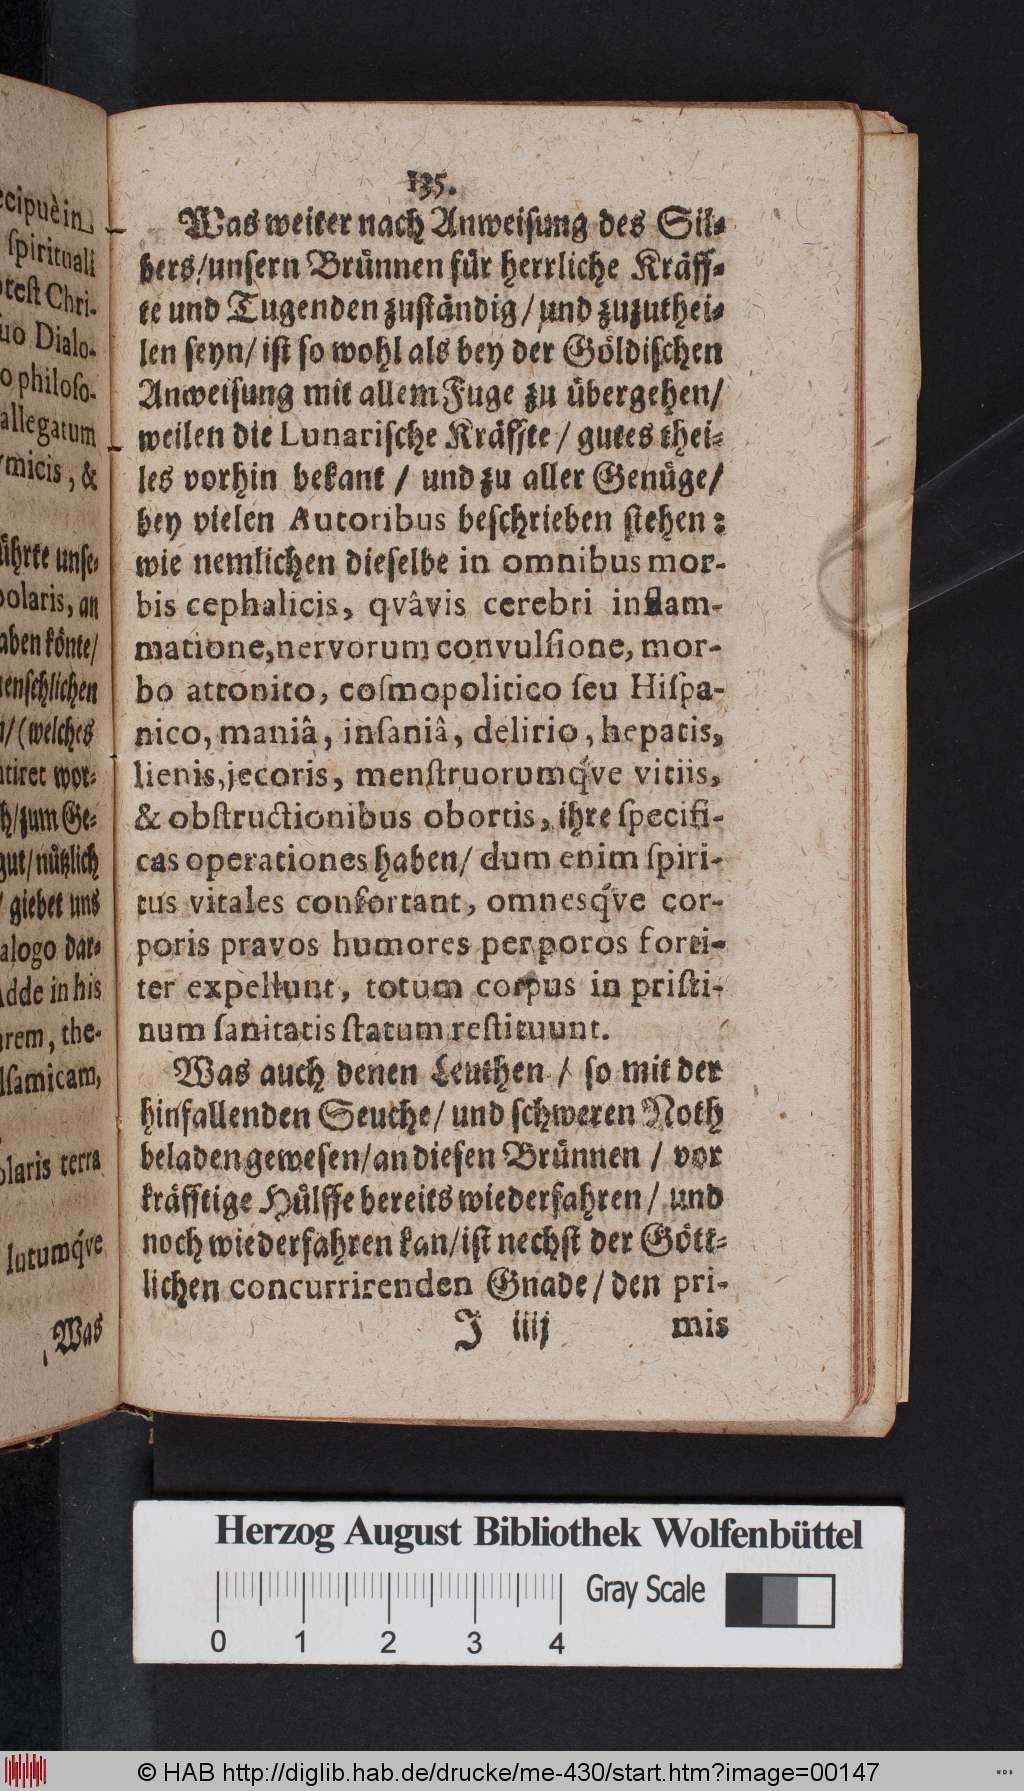 ecipuè in
spirituali
otest Chri-
uo Dialo-
o philoso-
allegatum
ymicis, &
ührte unse-
polaris, an
aben könte/
enschlichen
n/ (welches
ntiret wor-
h/ zum Ge-
gut/ nützlich
/ giebet uns
alogo dar-
Adde in his
arem, the-
lsamicam,
olaris terra
lutumq́ve
Was
135.
Was weiter nach Anweisung des Sil-
bers/ unsern Brünnen für herrliche Kräff-
te und Tugenden zuständig/ und zuzuthei-
len seyn/ ist so wohl als bey der Göldischen
Anweisung mit allem Fuge zu übergehen/
weilen die Lunarische Kräffte/ gutes thei-
les vorhin bekant / und zu aller Genüge/
bey vielen Autoribus beschrieben stehen:
wie nemlichen dieselbe in omnibus mor-
bis cephalicis, qvâvis cerebri inflam-
matione, nervorum convulsione, mor-
bo attonito, cosmopolitico seu Hispa-
nico, maniâ, insaniâ, delirio, hepatis,
lienis, jecoris, menstruorumq́ve vitiis,
& obstructionibus obortis, ihre specifi-
cas operationes haben/ dum enim spiri-
tus vitales confortant, omnesq́ve cor-
poris pravos humores per poros forti-
ter expellunt, totum corpus in pristi-
num sanitatis statum restituunt.
Was auch denen Leuthen / so mit der
hinfallenden Seuche/ und schweren Noth
beladen gewesen/ an diesen Brünnen / vor
kräfftige Hülffe bereits wiederfahren/ und
noch wiederfahren kan/ ist nechst der Gött-
lichen concurrirenden Gnade/ den pri-
J iiij mis
Herzog August Bibliothek Wolfenbüttel
Gray Scale
0 1 2 3 4
© HAB http://diglib.hab.de/drucke/me-430/start.htm?image=00147